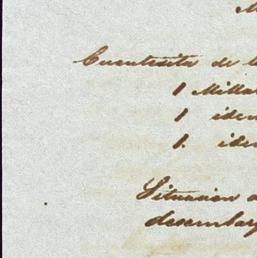 Cuentesita de l
1 Milla
1 iden
1. ide
Situacion
desembar